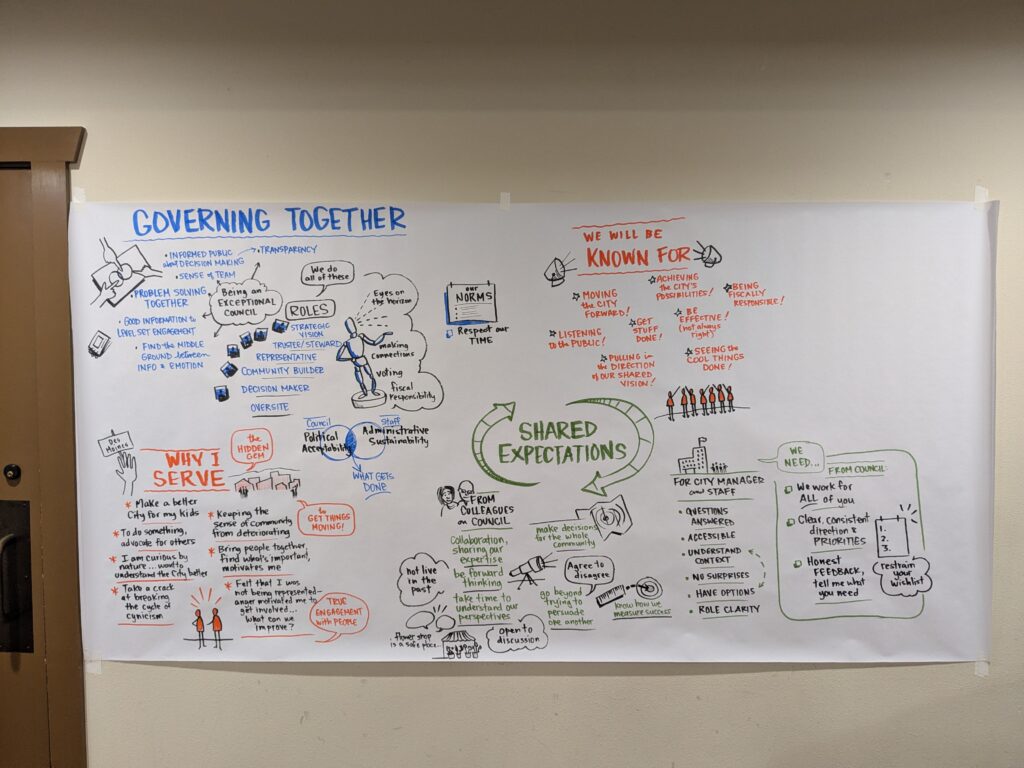 GOVERNING TOGETHER
• INFORMED PUBLIC
about DECISION MAKING
• TRANSPARENCY
• SENSE of TEAM
• PROBLEM SOLVING
TOGETHER
• GOOD INFORMATION to
LEVEL SET ENGAGEMENT
• FIND the MIDDLE
GROUND between
INFO & EMOTION
Being an
EXCEPTIONAL
COUNCIL
We do
all of these
ROLES
STRATEGIC
VISION
TRUSTEE/STEWARD
REPRESENTATIVE
COMMUNITY BUILDER
DECISION MAKER
OVERSITE
Eyes on
the horizon
making
connections
voting
fiscal
responsibility
our
NORMS
Respect our
TIME
Council
Political
Acceptability
Staff
Administrative
Sustainability
WHAT GETS
DONE
WE WILL BE
KNOWN FOR
MOVING
the CITY
FORWARD!
ACHIEVING
the CITY'S
POSSIBILITIES!
BEING
FISCALLY
RESPONSIBLE!
LISTENING
to the PUBLIC!
GET
STUFF
DONE!
BE
EFFECTIVE!
(not always
right)
PULLING in
the DIRECTION
of OUR SHARED
VISION!
SEEING the
COOL THINGS
DONE!
Des
Moines
WHY I
SERVE
the
HIDDEN
GEM
to
GET THINGS
MOVING!
* Make a better
City for my kids
* To do something,
advocate for others
* I am curious by
nature... want to
understand the City better
* Take a crack
at breaking
the cycle of
cynicism
* Keeping the
sense of community
from deteriorating
* Bring people together,
find what's important,
motivates me
* Felt that I was
not being represented–
anger motivated me to
get involved...
What can we
improve?
TRUE
ENGAGEMENT
with PEOPLE
SHARED
EXPECTATIONS
FROM
COLLEAGUES
on COUNCIL
Collaboration,
sharing our
expertise
be forward
thinking
take time to
understand our
perspectives
not live
in the
past
flower shop
is a safe place
open to
discussion
make decisions
for the whole
community
Agree to
disagree
go beyond
trying to
persuade
one another
know how we
measure success
FOR CITY MANAGER
and STAFF
• QUESTIONS
ANSWERED
• ACCESSIBLE
• UNDERSTAND
CONTEXT
• NO SURPRISES
• HAVE OPTIONS
• ROLE CLARITY
WE
NEED...
FROM COUNCIL
We work for
ALL of you
Clear, consistent
direction &
PRIORITIES
Honest
FEEDBACK,
tell me what
you need
1.
2.
3.
restrain
your
wishlist